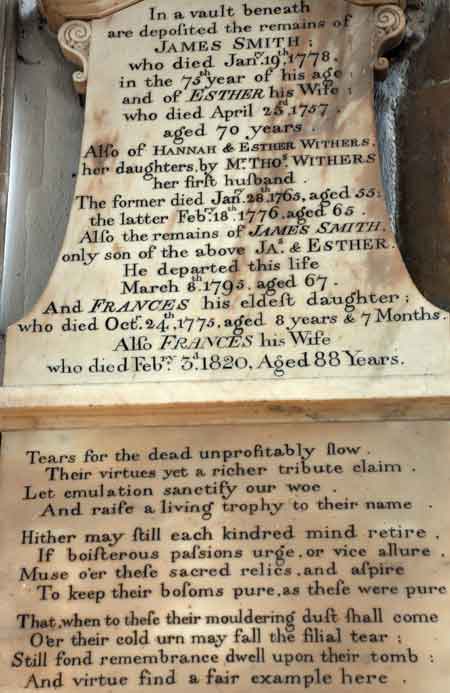 In a vault beneath
are depoſited the remains of
JAMES SMITH;
who died Janʸ. 19ᵗʰ, 1778,
in the 75ᵗʰ year of his age;
and of ESTHER his Wife;
who died April 23ʳᵈ, 1757.
aged 70 years.
Alſo of HANNAH & ESTHER WITHERS,
her daughters, by Mʳ. THOˢ. WITHERS
her firſt huſband.
The former died Janʸ. 28ᵗʰ, 1765, aged 55;
the latter Febʸ. 18ᵗʰ, 1776, aged 65.
Alſo the remains of JAMES SMITH,
only son of the above JAˢ. & ESTHER.
He departed this life
March 8ᵗʰ, 1795, aged 67.
And FRANCES his eldeſt daughter;
who died Octʳ. 24ᵗʰ, 1775, aged 8 years & 7 Months.
Alſo FRANCES his Wife
who died Febʳʸ 3ᵈ, 1820, Aged 88 Years.
Tears for the dead unprofitably flow.
Their virtues yet a richer tribute claim.
Let emulation sanctify our woe.
And raiſe a living trophy to their name.
Hither may ſtill each kindred mind retire,
If boiſterous paſsions urge, or vice allure,
Muse o'er theſe sacred relics, and aſpire
To keep their boſoms pure, as theſe were pure
That, when to theſe their mouldering duſt ſhall come
O'er their cold urn may fall the filial tear;
Still fond remembrance dwell upon their tomb;
And virtue find a fair example here.